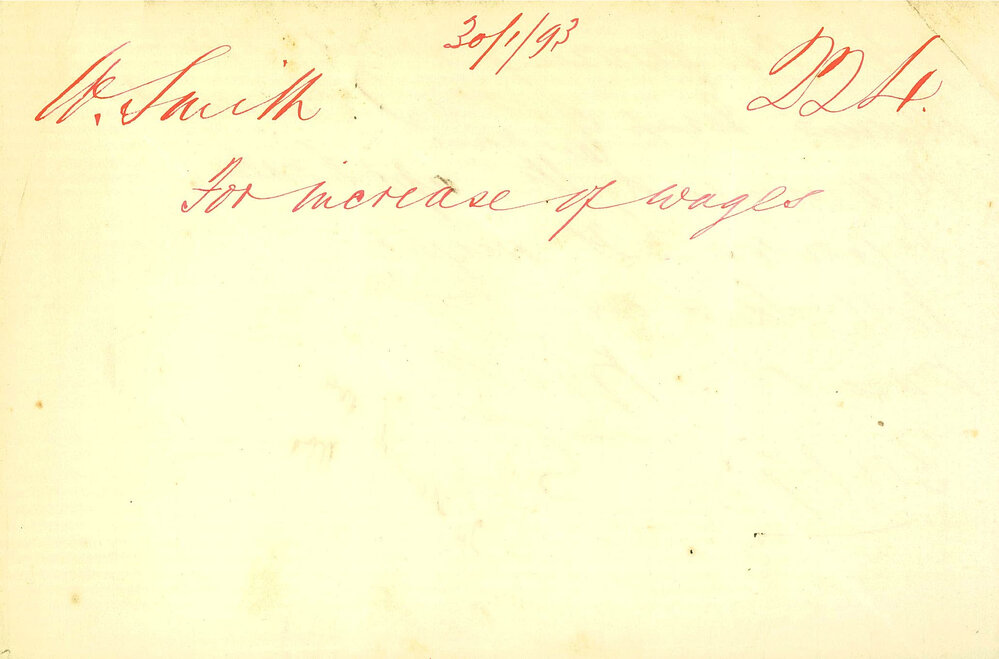 30/1/93
W. Smith 224.
For increase of wages